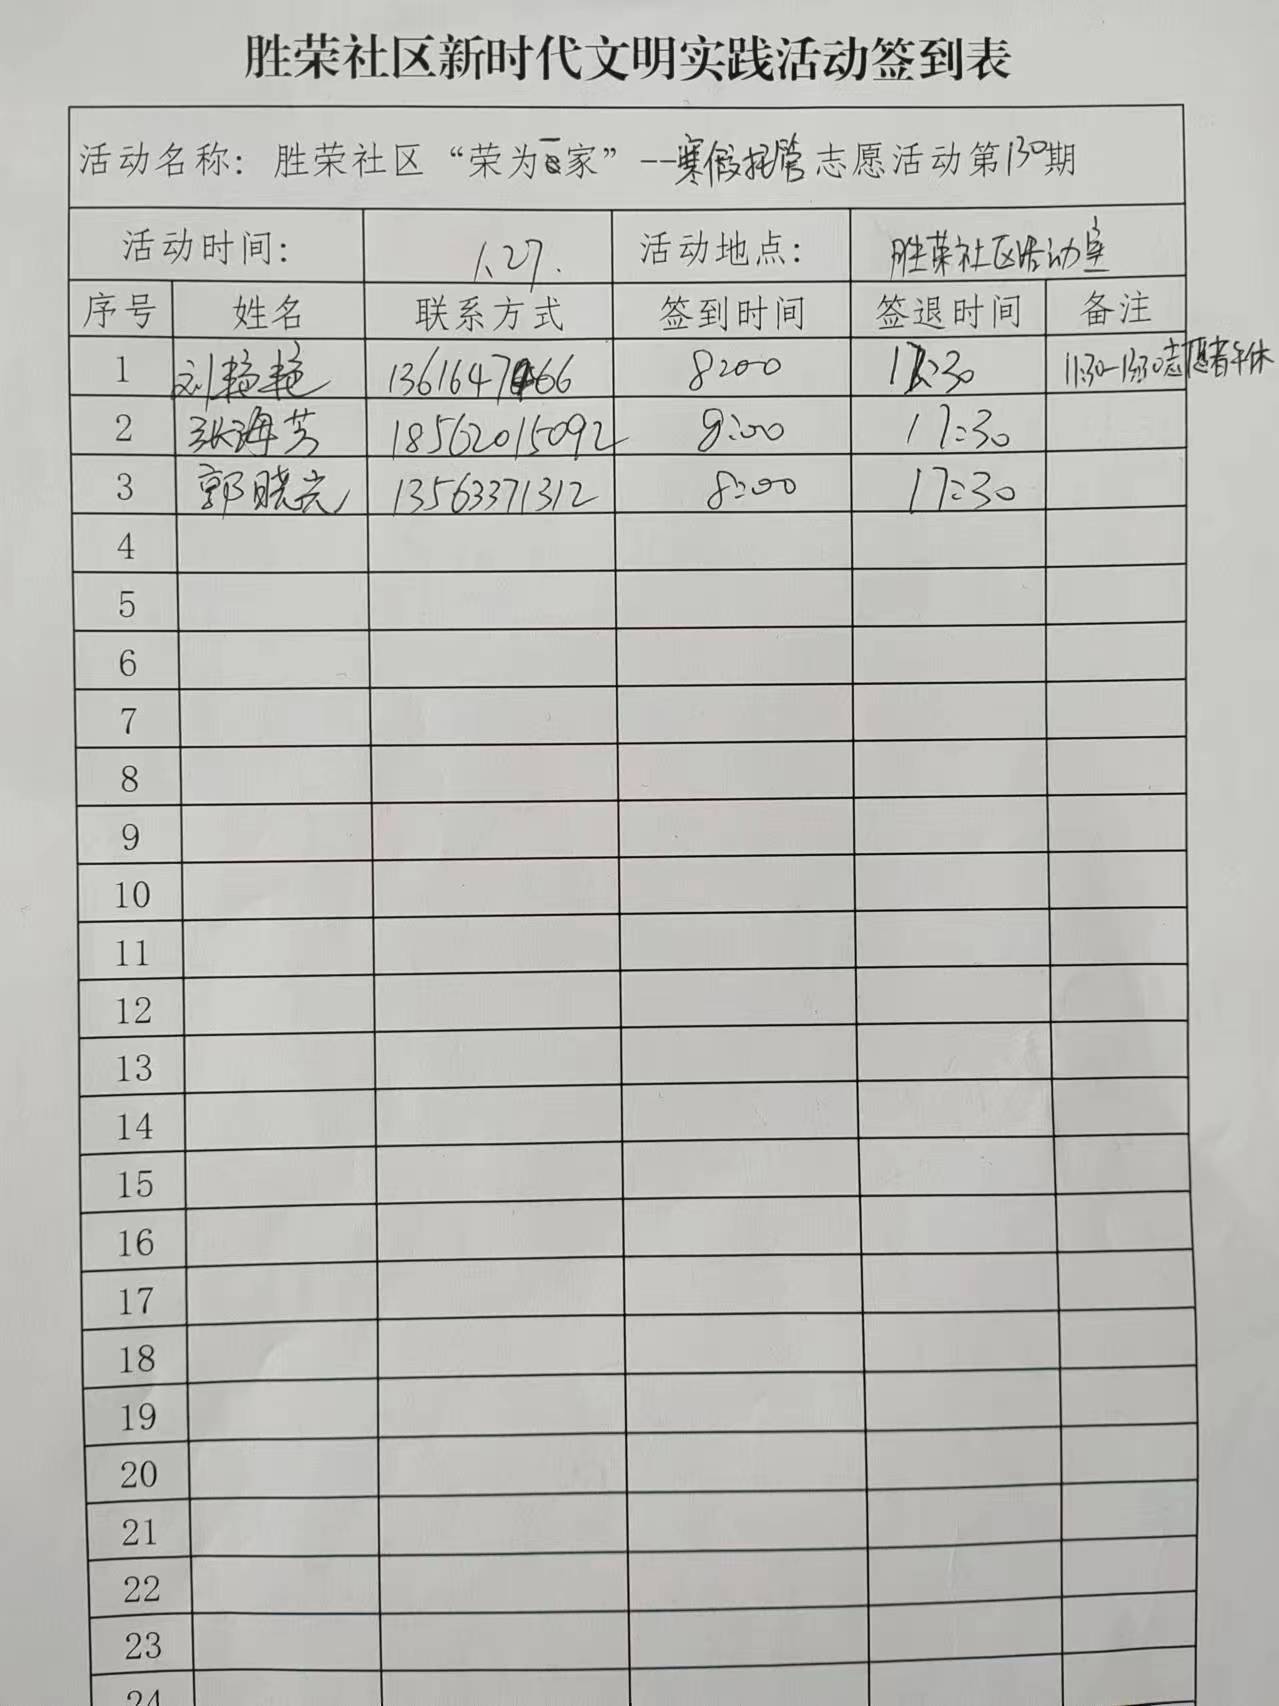 胜荣社区新时代文明实践活动签到表
活动名称：胜荣社区“荣为一家”--寒假托管志愿活动第130期
活动时间： 1.27. 活动地点： 胜荣社区活动室
序号 姓名 联系方式 签到时间 签退时间 备注
1 刘艳艳 8:00 17:30 11:30-13:30志愿者午休
2 张海芳 18562015092 8:00 17:30
3 郭晓 13563371312 8:00 17:30
4
5
6
7
8
9
10
11
12
13
14
15
16
17
18
19
20
21
22
23
24